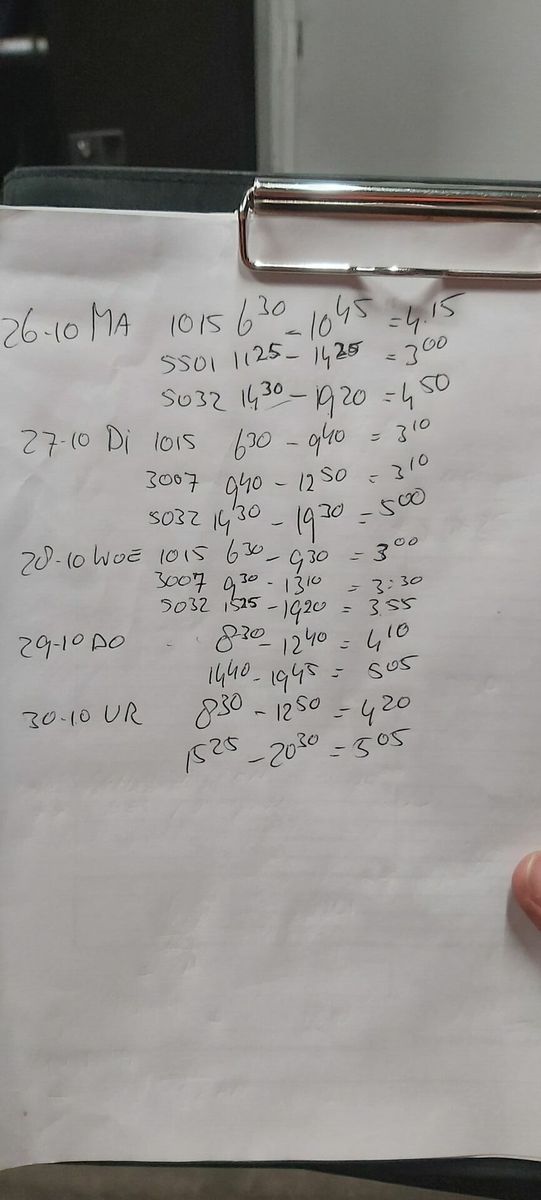 26-10 MA 1015 6³⁰ - 10⁴⁵ = 4.15
5501 11²⁵ - 14²⁵ = 3⁰⁰
5032 14³⁰ - 1920 = 4⁵⁰
27-10 Di 1015 630 - 9⁴⁰ = 3¹⁰
3007 9⁴⁰ - 12⁵⁰ = 3¹⁰
5032 14³⁰ - 19³⁰ = 5⁰⁰
28-10 WOE 1015 6³⁰ - 9³⁰ = 3⁰⁰
3007 9³⁰ - 13¹⁰ = 3:30
5032 15²⁵ - 19²⁰ = 3.55
29-10 DO - 8³⁰ - 12⁴⁰ = 4¹⁰
14⁴⁰ - 19⁴⁵ = 5⁰⁵
30-10 VR 8³⁰ - 12⁵⁰ = 4²⁰
15²⁵ - 20³⁰ = 5⁰⁵